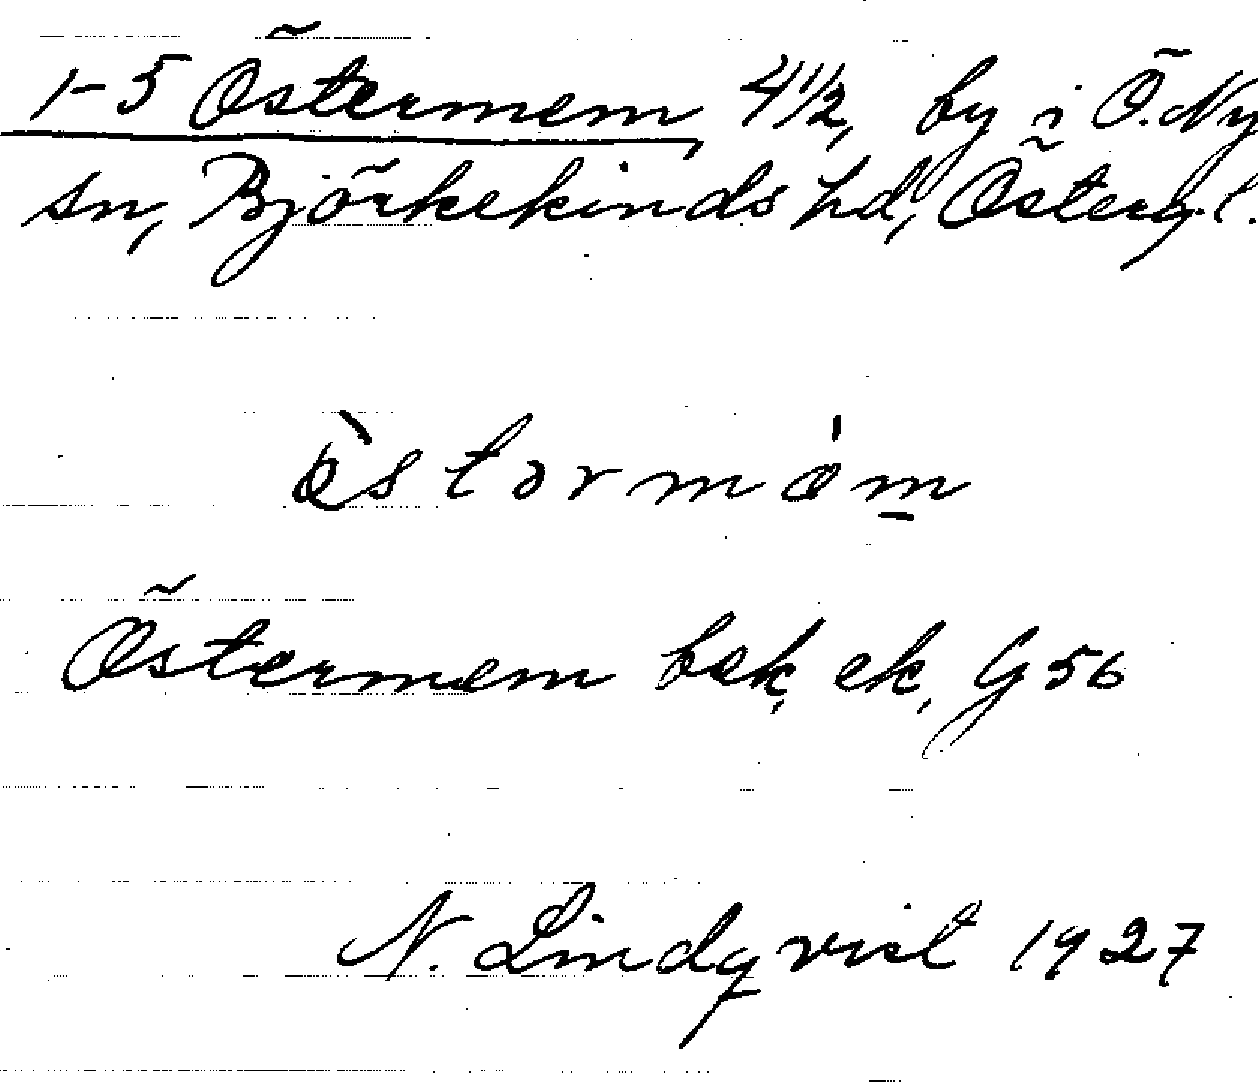 1-5 Östermem 4 1/2, by i Ö. Ny
sn, Björkekinds hd, Österg. l.
Östermem bek, ek, G 56
N. Lindqvist 1927